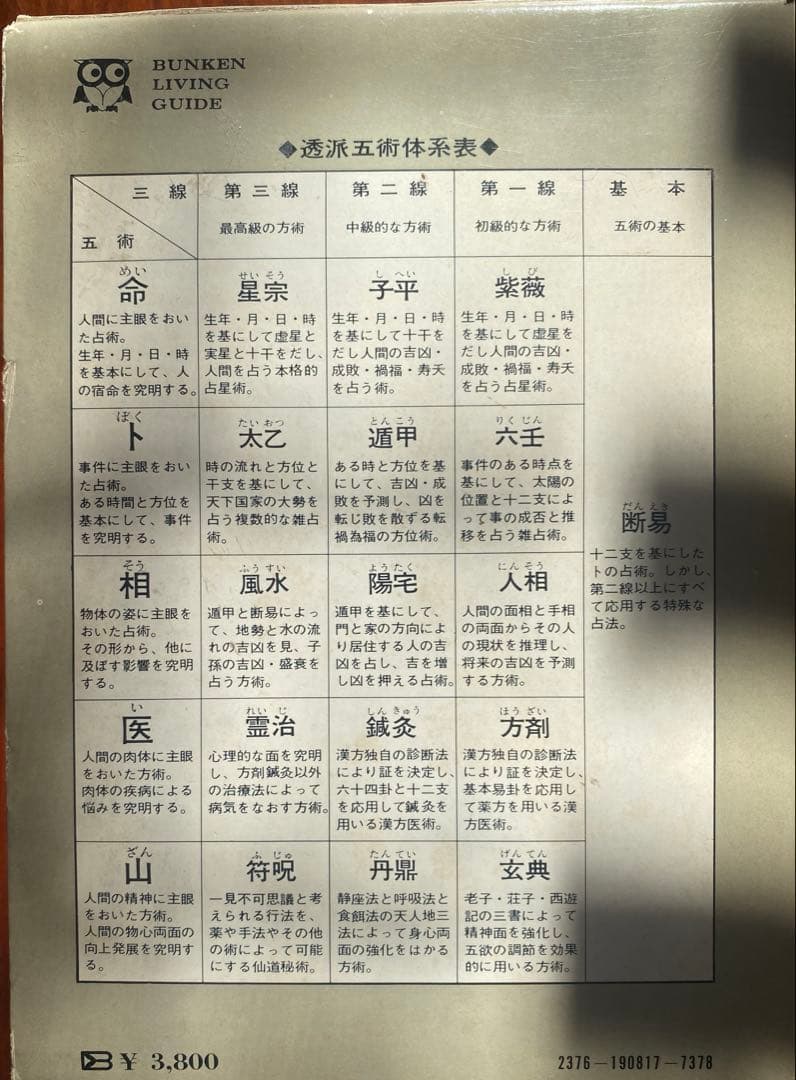 BUNKEN
LIVING
GUIDE
◆透派五術体系表◆
三線
五術
第三線
最高級の方術
第二線
中級的な方術
第一線
初級的な方術
基本
五術の基本
めい
命
人間に主眼をおい
た占術。
生年・月・日・時
を基本にして、人
の宿命を究明する。
せいそう
星宗
生年・月・日・時
を基にして虚星と
実星と十干をだし、
人間を占う本格的
占星術。
しへい
子平
生年・月・日・時
を基にして十干を
だし人間の吉凶・
成敗・禍福・寿夭
を占う術。
しび
紫薇
生年・月・日・時
を基にして虚星を
だし人間の吉凶・
成敗・禍福・寿夭
を占う占星術。
ぼく
卜
事件に主眼をおい
た占術。
ある時間と方位を
基本にして、事件
を究明する。
たいおつ
太乙
時の流れと方位と
干支を基にして、
天下国家の大勢を
占う複数的な雑占
術。
とんこう
遁甲
ある時と方位を基
にして、吉凶・成
敗を予測し、凶を
転じ敗を散ずる転
禍為福の方位術。
りくじん
六壬
事件のある時点を
基にして、太陽の
位置と十二支によ
って事の成否と推
移を占う雑占術。
だんえき
断易
十二支を基にした
卜の占術。しかし、
第二線以上にすべ
て応用する特殊な
占法。
そう
相
物体の姿に主眼を
おいた占術。
その形から、他に
及ぼす影響を究明
する。
ふうすい
風水
遁甲と断易によっ
て、地勢と水の流
れの吉凶を見、子
孫の吉凶・盛衰を
占う方術。
ようたく
陽宅
遁甲を基にして、
門と家の方向によ
り居住する人の吉
凶を占し、吉を増
し凶を押える占術。
にんそう
人相
人間の面相と手相
の両面からその人
の現状を推理し、
将来の吉凶を予測
する方術。
い
医
人間の肉体に主眼
をおいた方術。
肉体の疾病による
悩みを究明する。
れいじ
霊治
心理的な面を究明
し、方剤鍼灸以外
の治療法によって
病気をなおす方術。
しんきゅう
鍼灸
漢方独自の診断法
により証を決定し、
六十四卦と十二支
を応用して鍼灸を
用いる漢方医術。
ほうざい
方剤
漢方独自の診断法
により証を決定し、
基本易卦を応用し
て薬方を用いる漢
方医術。
ざん
山
人間の精神に主眼
をおいた方術。
人間の物心両面の
向上発展を究明す
る。
ふじゅ
符呪
一見不可思議と考
えられる行法を、
薬や手法やその他
の術によって可能
にする仙道秘術。
たんてい
丹鼎
静座法と呼吸法と
食餌法の天人地三
法によって身心両
面の強化をはかる
方術。
げんてん
玄典
老子・荘子・西遊
記の三書によって
精神面を強化し、
五欲の調節を効果
的に用いる方術。
¥ 3,800
2376-190817-7378